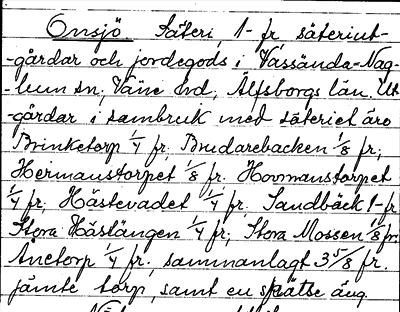 Onsjö. Säteri, 1- fr. säteriut-
-gårdar och jordegods i Vassända-Nag-
-lum sn; Väne hd, Älfsborgs län. Ut-
-gårdar i sambruk med säteriet äro
Brinketorp 1/4 fr; Brudarebacken 1/8 fr;
Hermanstorpet 1/8 fr. Hovmanstorpet
1/4 fr; Hästevadet 1/4 fr. Sandbäck 1- fr
Stora Hästängen 1/4 fr; Stora Mossen 1/8 fr;
Anetorp 1/4 fr. sammanlagt 3 5/8 fr.
jämte torp, samt en äng.